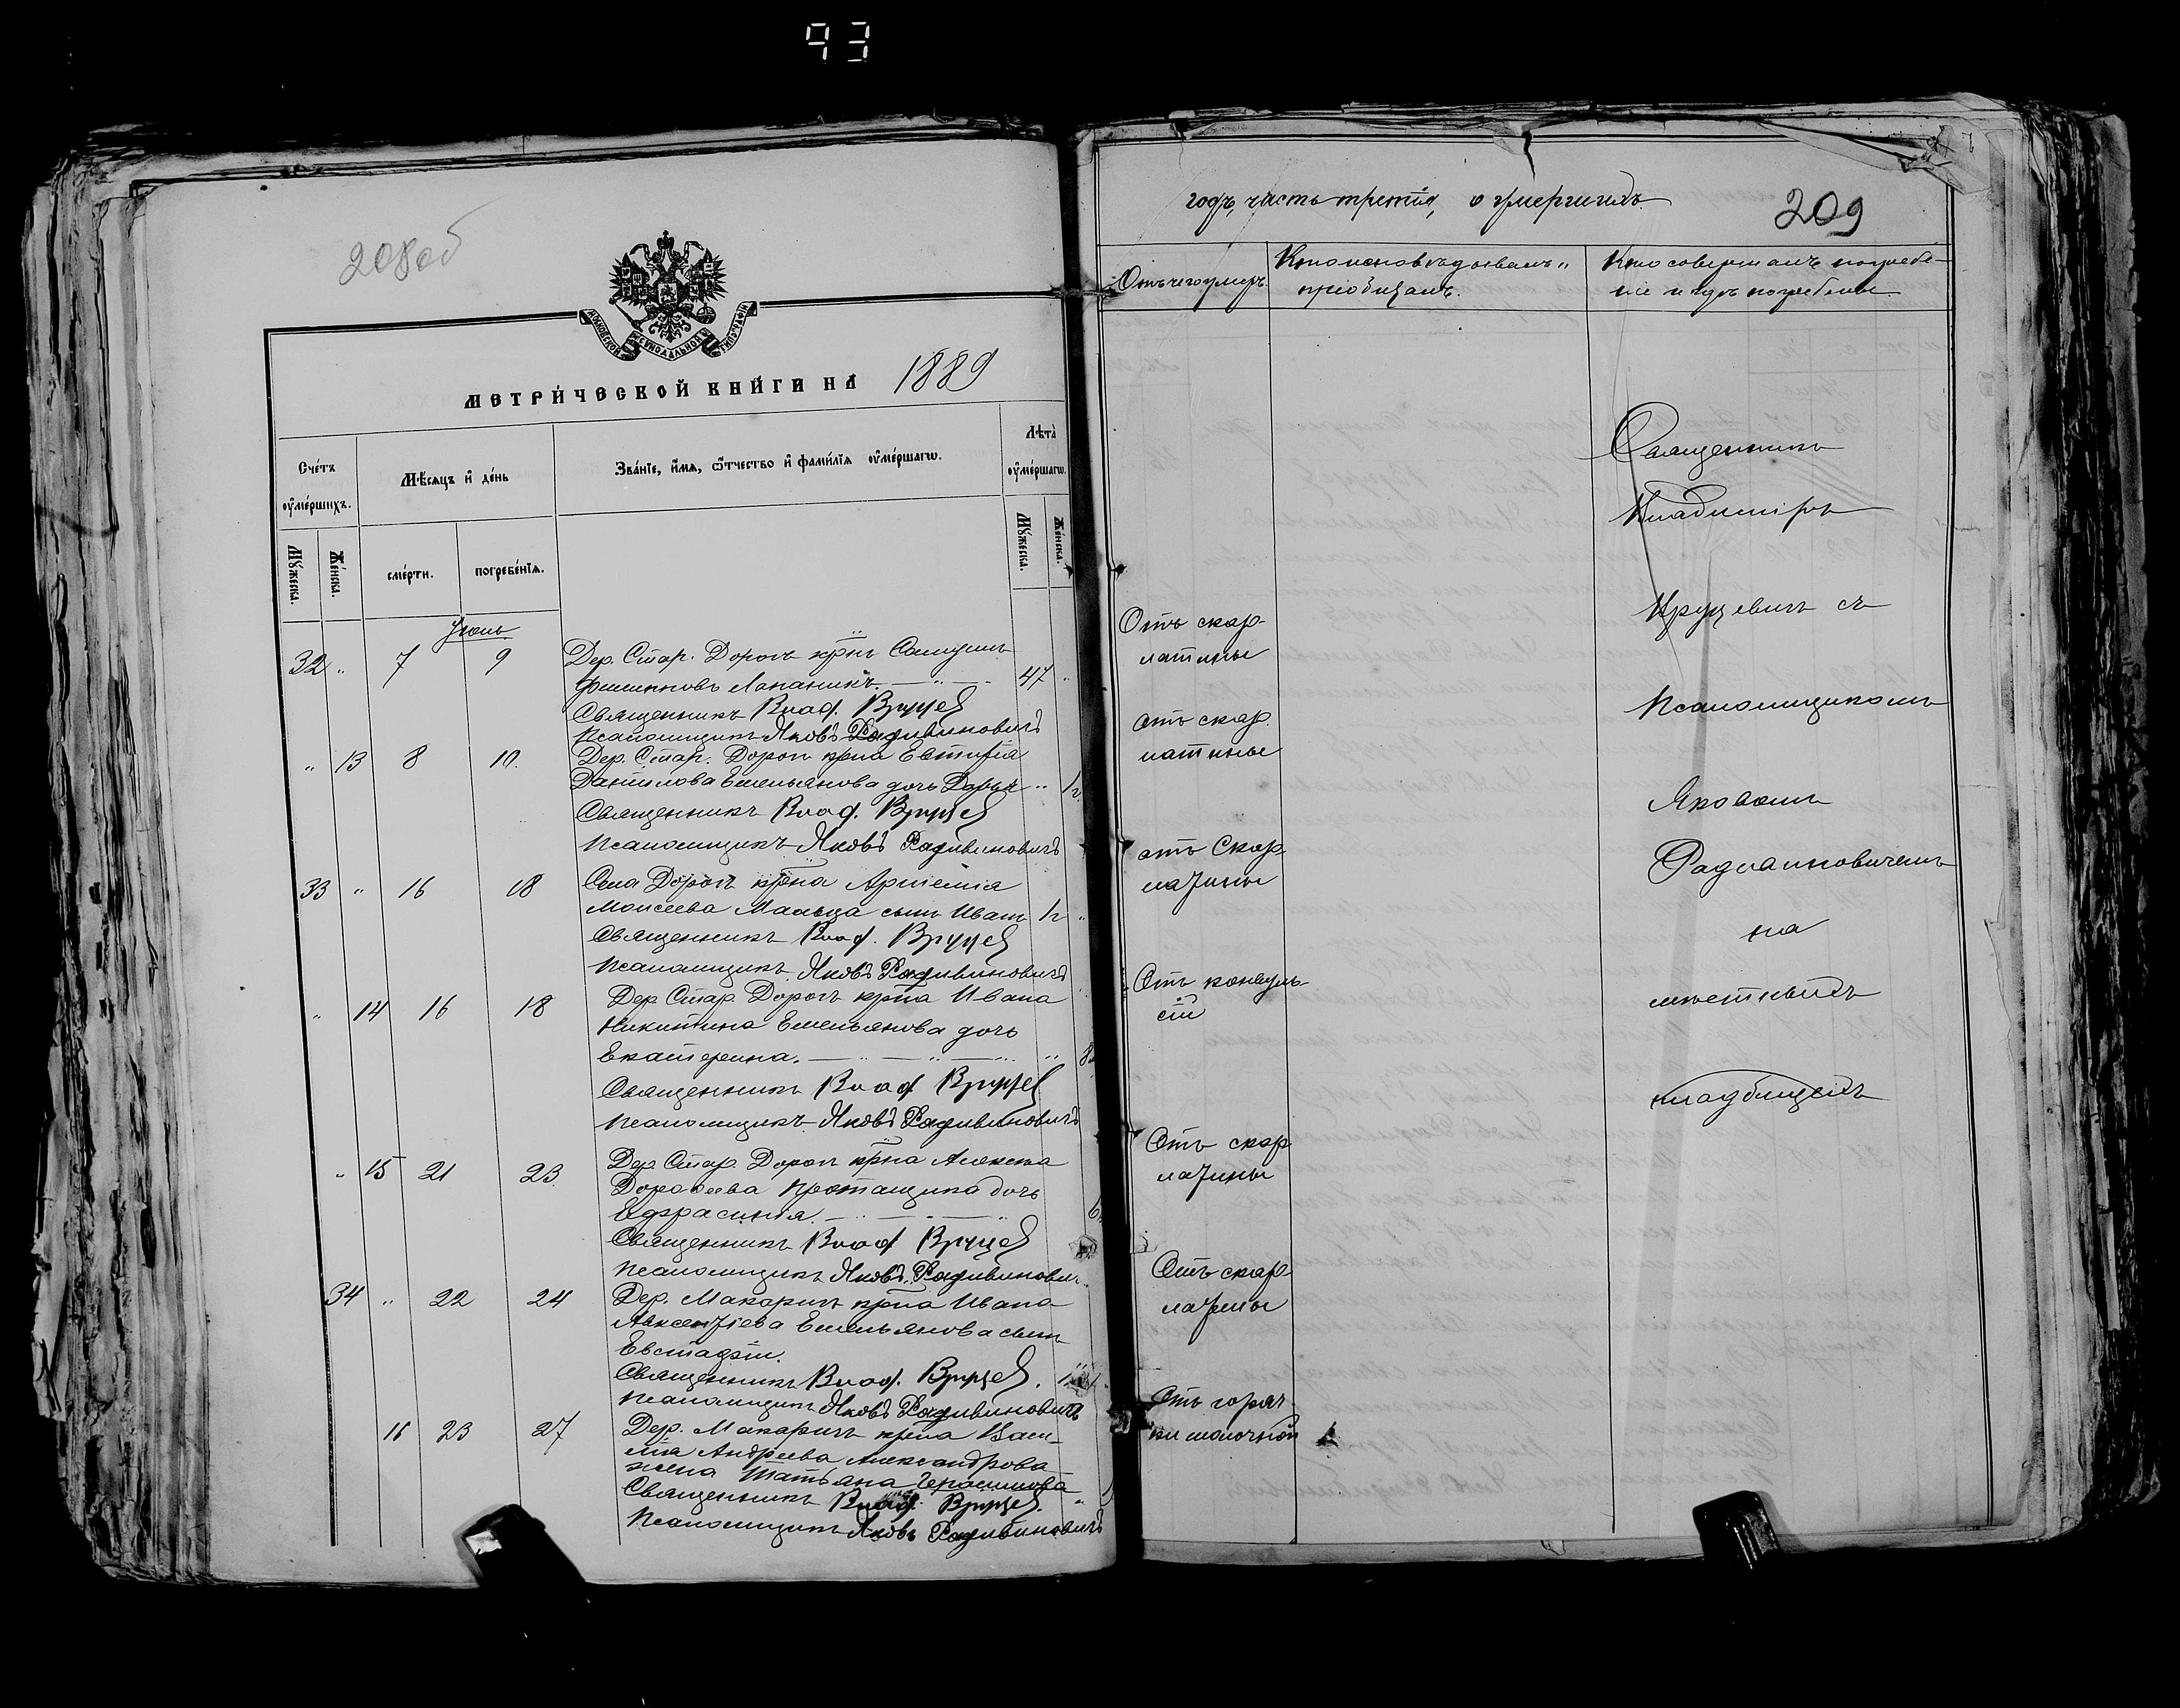 93
208об
МОСКОВСКОЙ СѴНОДАЛЬНОЙ ТИПОГРАФІИ
МЕТРИ́ЧЕСКОЙ КНИ́ГИ НА 1889
Сче́тъ ᲂу҆ме́ршихъ.
Мѣ́сяцъ и҆ де́нь
Зва́нїе, и҆́мѧ, ѻ҆́тчество и҆ фами́лїѧ ᲂу҆ме́ршагѡ.
Лѣ́та ᲂу҆ме́ршагѡ.
Мꙋ́жеска.
Же́нска.
сме́рти.
погребе́нїѧ.
Мꙋ́жеска.
Же́нска.
Іюнь
32 " 7 9 Дер. Стар. Дорогъ крнъ
47 "
Священникъ Влад. Вруцев
Псаломщикъ Яковъ Радивиновичъ
" 13 8 10. Дер. Стар. Дорогъ крна
Данилова Емельянова дочь Дарья " 1 г.
Священникъ Влад. Вруцев
Псаломщикъ Яковъ Радивиновичъ
33 " 16 18 Села Дорогъ крна Артемія
Моисеева Мальца сынъ Иванъ 1 г "
Священникъ Влад. Вруцев
Псаломщикъ Яковъ Радивиновичъ
" 14 16 18 Дер. Стар. Дорогъ крна Ивана
Никитина Емельянова дочь
Екатерина. " 8
Священникъ Влад Вруцев
Псаломщикъ Яковъ Радивиновичъ
" 15 21 23 Дер. Стар. Дорогъ крна Алексѣя
Дорофеева дочь
Ефросинія. " 6
Священникъ Влад Вруцев
Псаломщикъ Яковъ Радивинович
34 " 22 24 Дер. Макаричъ крна Ивана
Авксентіева Емельянова сынъ
Евстафій.
Священникъ Влад. Вруцев.
Псаломщикъ Яковъ Радивиновичъ
16 23 27 Дер. Макаричъ крна Васи-
лія Андреева Александрова
жена Татьяна Герасимова
Священникъ Влад. Вруцев. "
Псаломщикъ Яковъ Радивиновичъ
годъ, часть третія, о умершихъ.
209
Отъ чего умеръ.
Кто исповѣдывалъ и
пріобщалъ.
Кто совершалъ погребе-
ніе и гдѣ погребены.
Отъ скар-
латины
отъ скар
латины
отъ Скар-
латины
Отъ конвуль-
сій
Отъ скар
латины
Отъ скар-
латины
Отъ горяч-
ки молочной
Священникъ
Владиміръ
Вруцевичъ съ
Псаломщикомъ
Яковомъ
Радивиновичемъ
на
мѣстныхъ
кладбищахъ